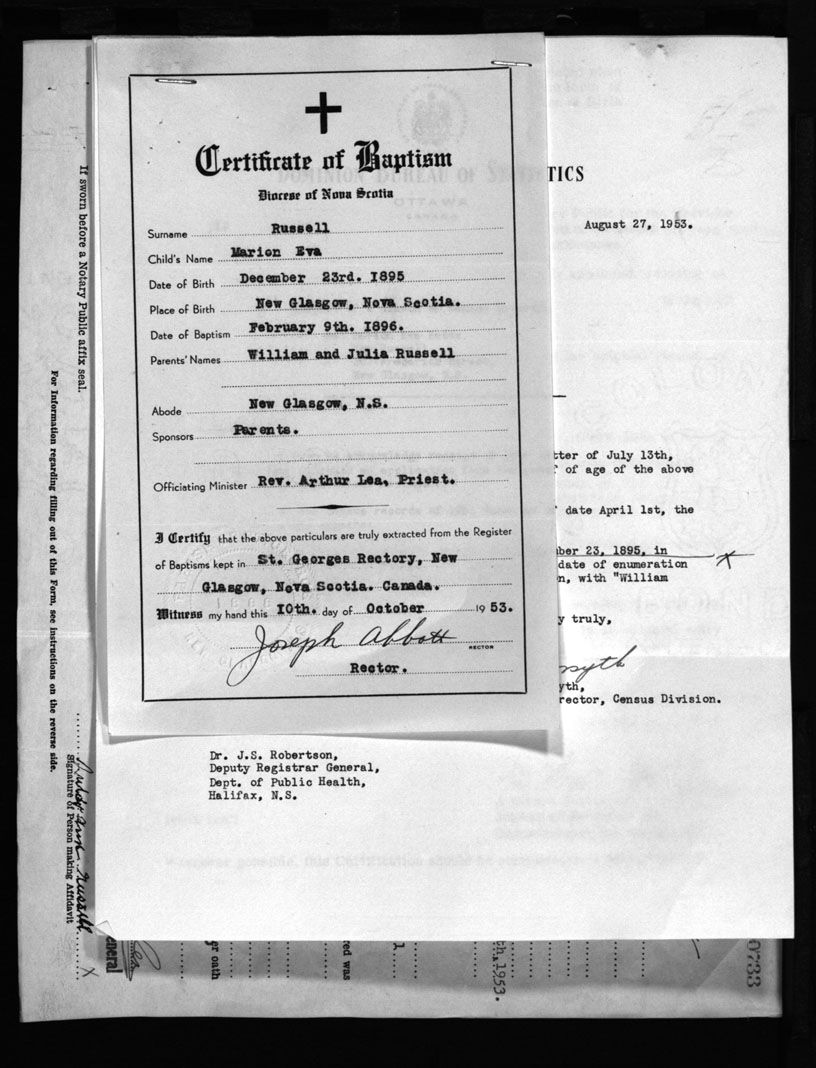 Certificate of Baptism
Diocese of Nova Scotia
Surname Russell
Child's Name Marion Eva
Date of Birth December 23rd. 1895
Place of Birth New Glasgow, Nova Scotia.
Date of Baptism February 9th. 1896.
Parents' Names William and Julia Russell
Abode New Glasgow, N.S.
Sponsors Parents.
Officiating Minister Rev. Arthur Lea, Priest.
I Certify that the above particulars are truly extracted from the Register
of Baptisms kept in St. Georges Rectory, New
Glasgow, Nova Scotia. Canada.
Witness my hand this 10th. day of October 1953.
Joseph Abbott
RECTOR
Rector.
DOMINION BUREAU OF STATISTICS
OTTAWA
CANADA
August 27, 1953.
tter of July 13th,
of age of the above
date April 1st, the
ber 23, 1895, in
date of enumeration
n, with "William
y truly,
syth
yth,
rector, Census Division.
Dr. J.S. Robertson,
Deputy Registrar General,
Dept. of Public Health,
Halifax, N.S.
If sworn before a Notary Public affix seal.
For information regarding filling out of this Form, see instructions on the reverse side.
Russell X
Signature of Person making Affidavit
General
er oath
red was
1
th, 1953.
0733